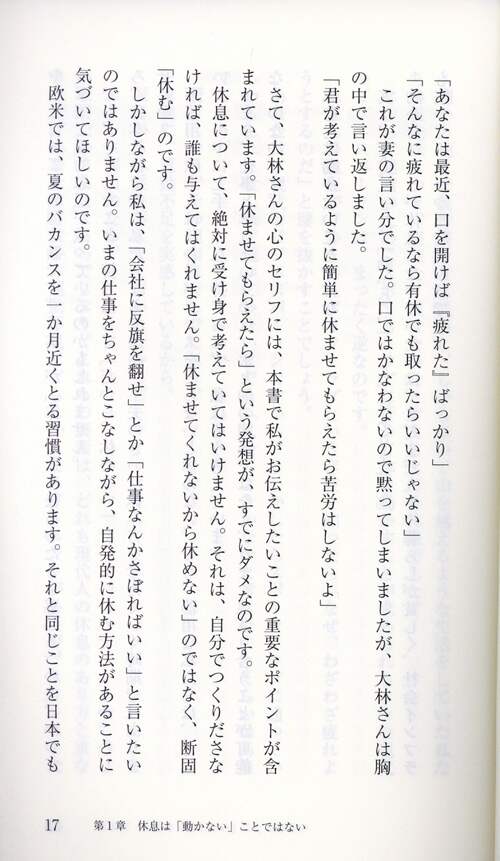 「あなたは最近、口を開けば『疲れた』ばっかり」
「そんなに疲れているなら有休でも取ったらいいじゃない」
これが妻の言い分でした。口ではかなわないので黙ってしまいましたが、大林さんは胸
の中で言い返しました。
「君が考えているように簡単に休ませてもらえたら苦労はしないよ」
さて、大林さんの心のセリフには、本書で私がお伝えしたいことの重要なポイントが含
まれています。「休ませてもらえたら」という発想が、すでにダメなのです。
休息について、絶対に受け身で考えていてはいけません。それは、自分でつくりださな
ければ、誰も与えてはくれません。「休ませてくれないから休めない」のではなく、断固
「休む」のです。
しかしながら私は、「会社に反旗を翻せ」とか「仕事なんかさぼればいい」と言いたい
のではありません。いまの仕事をちゃんとこなしながら、自発的に休む方法があることに
気づいてほしいのです。
欧米では、夏のバカンスを一か月近くとる習慣があります。それと同じことを日本でも
17 第1章 休息は「動かない」ことではない